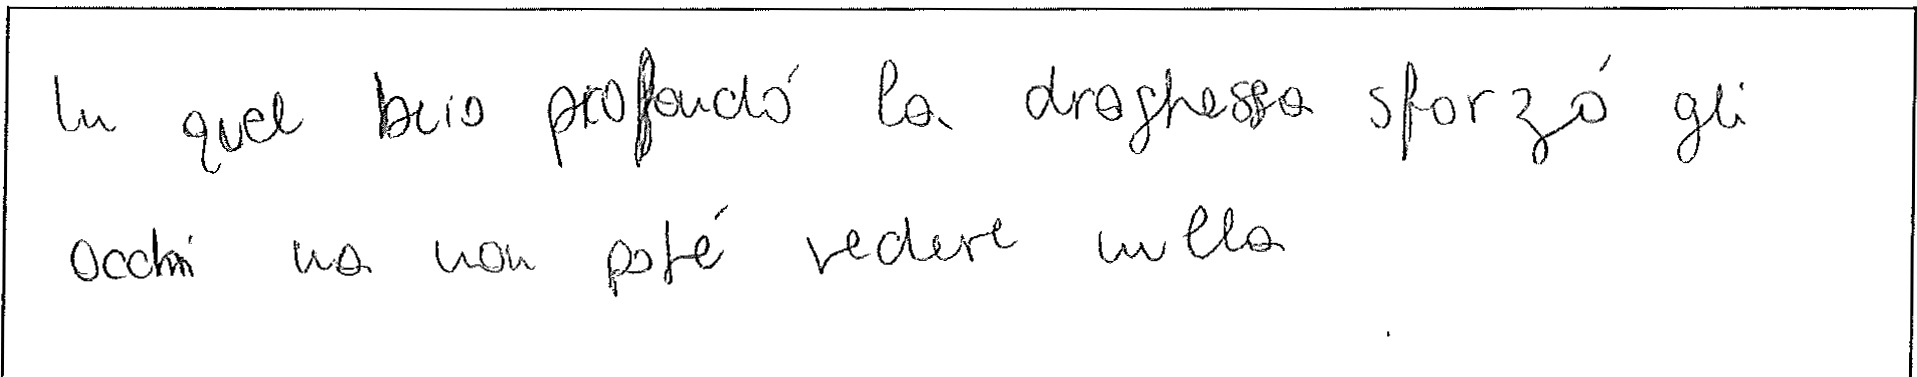 In quel buio profondó la draghessa sforzó gli
occhi ma non poté vedere nulla